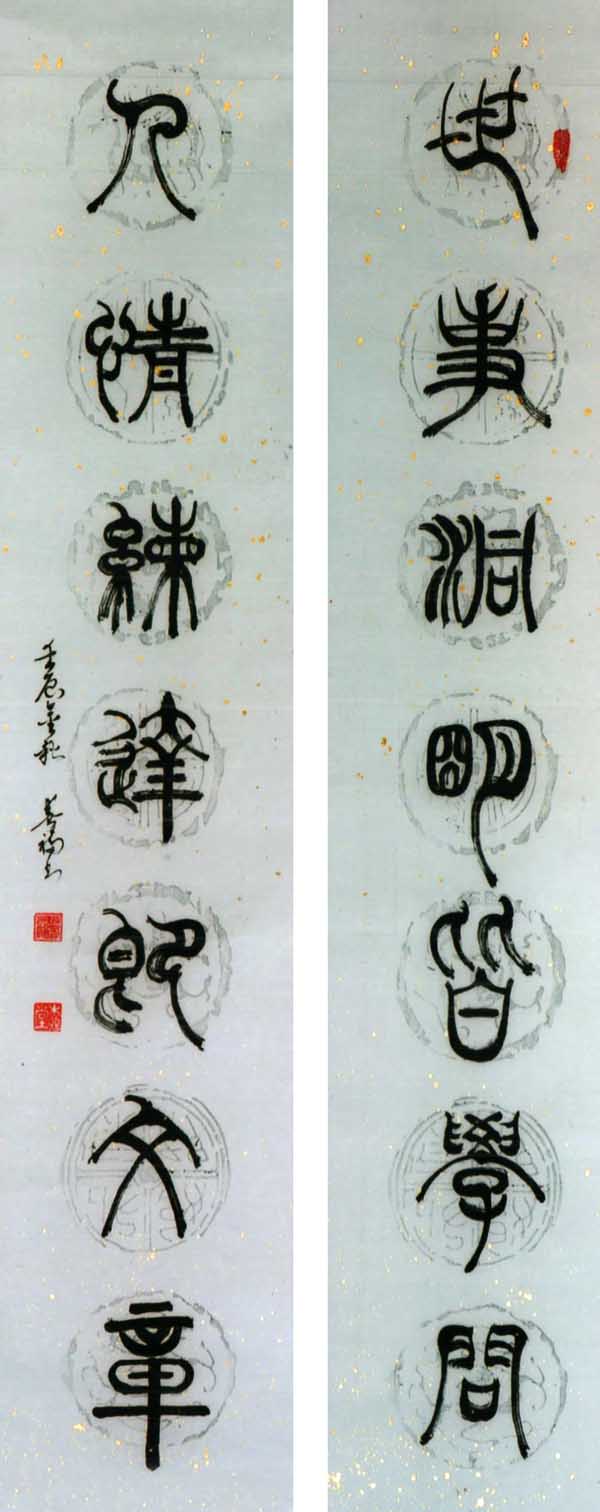 世事洞明皆學問
人情練達即文章
壬辰金秋